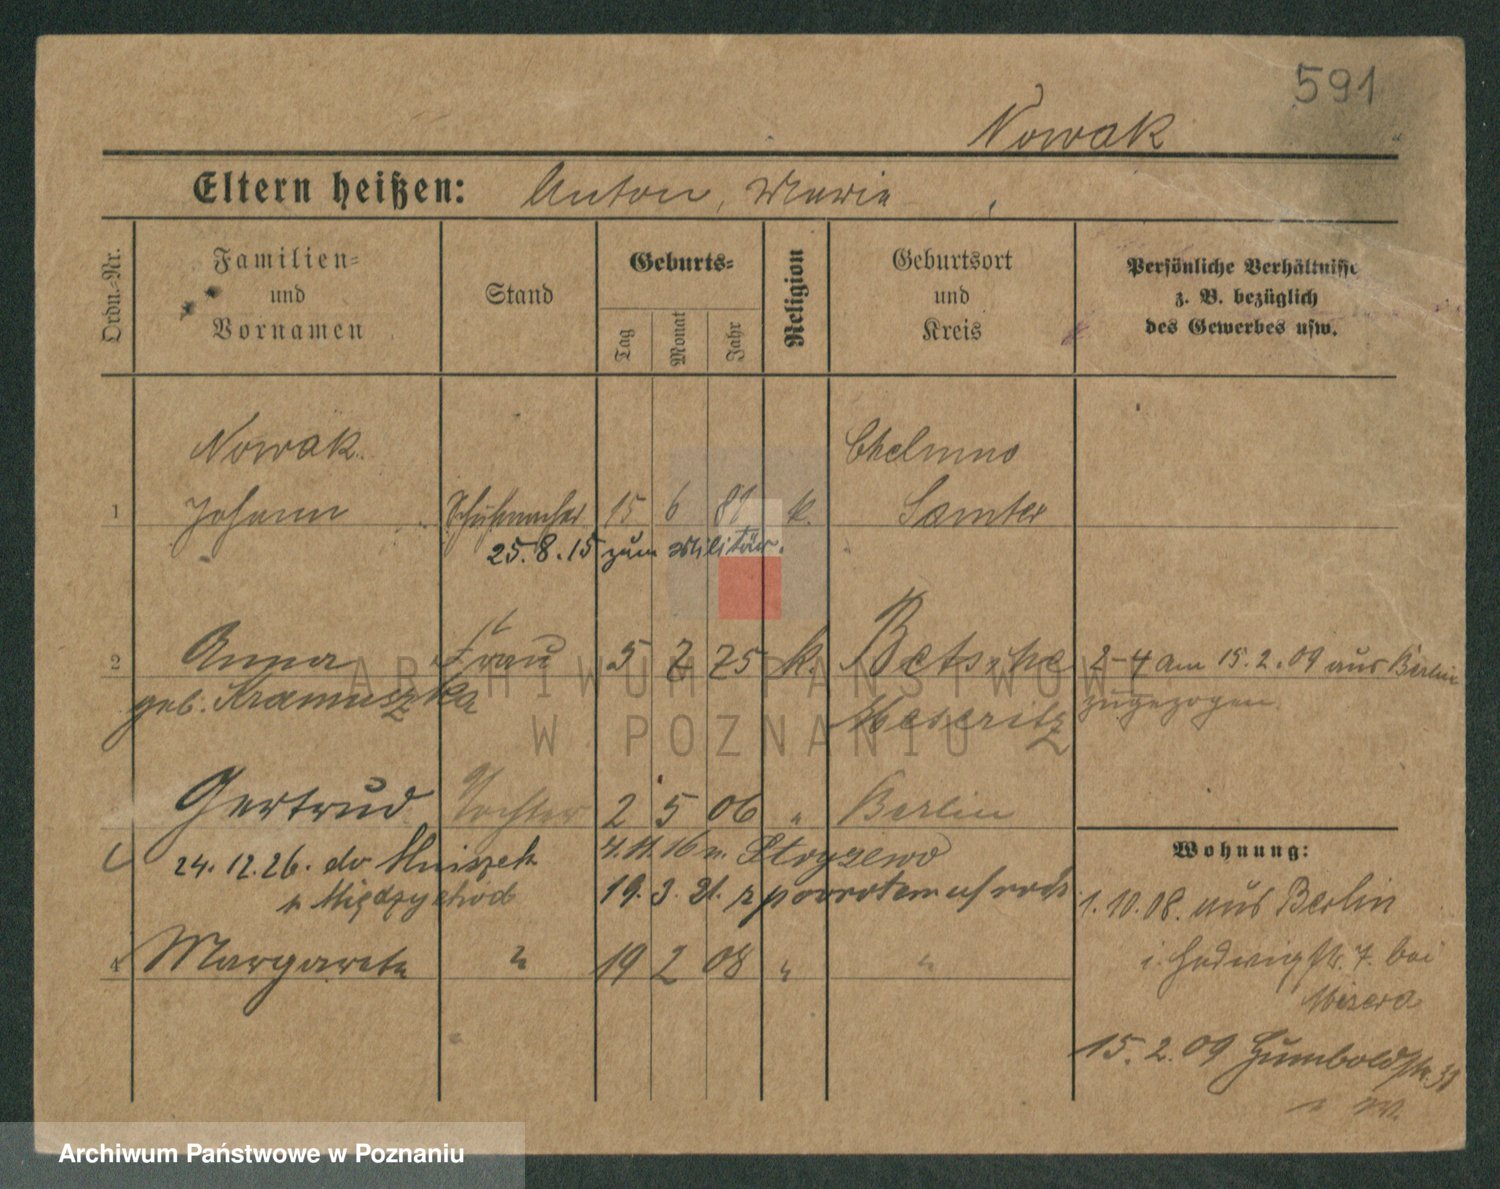 591
Nowak
Eltern heißen: Anton, Marie
Ordn.-Nr.
Familien-
und
Vornamen
Stand
Geburts-
Tag
Monat
Jahr
Religion
Geburtsort
und
Kreis
Persönliche Verhältnisse
z. B. bezüglich
des Gewerbes usw.
Nowak. Chelmno
1 Johann Schuhmacher 15. 6 81 k. Samter
25.8.15 zum Militär.
2 Anna Frau 5 7 75 k. Betsche 2-4 am 15.2.09 aus Berlin
geb. Kramuszka Meseritz zugezogen.
Gertrud Tochter 2 5 06 " Berlin
24.12.26. do
Międzychód
4.11.16 n.
19.3.21. z powrotem
4 Margarete " 19 2 08 " "
Wohnung:
1.10.08. aus Berlin
i. Hedwigstr. 7. bei
Misera
15.2.09 Humboldstr. 31
ARCHIWUM PAŃSTWOWE
W POZNANIU
Archiwum Państwowe w Poznaniu